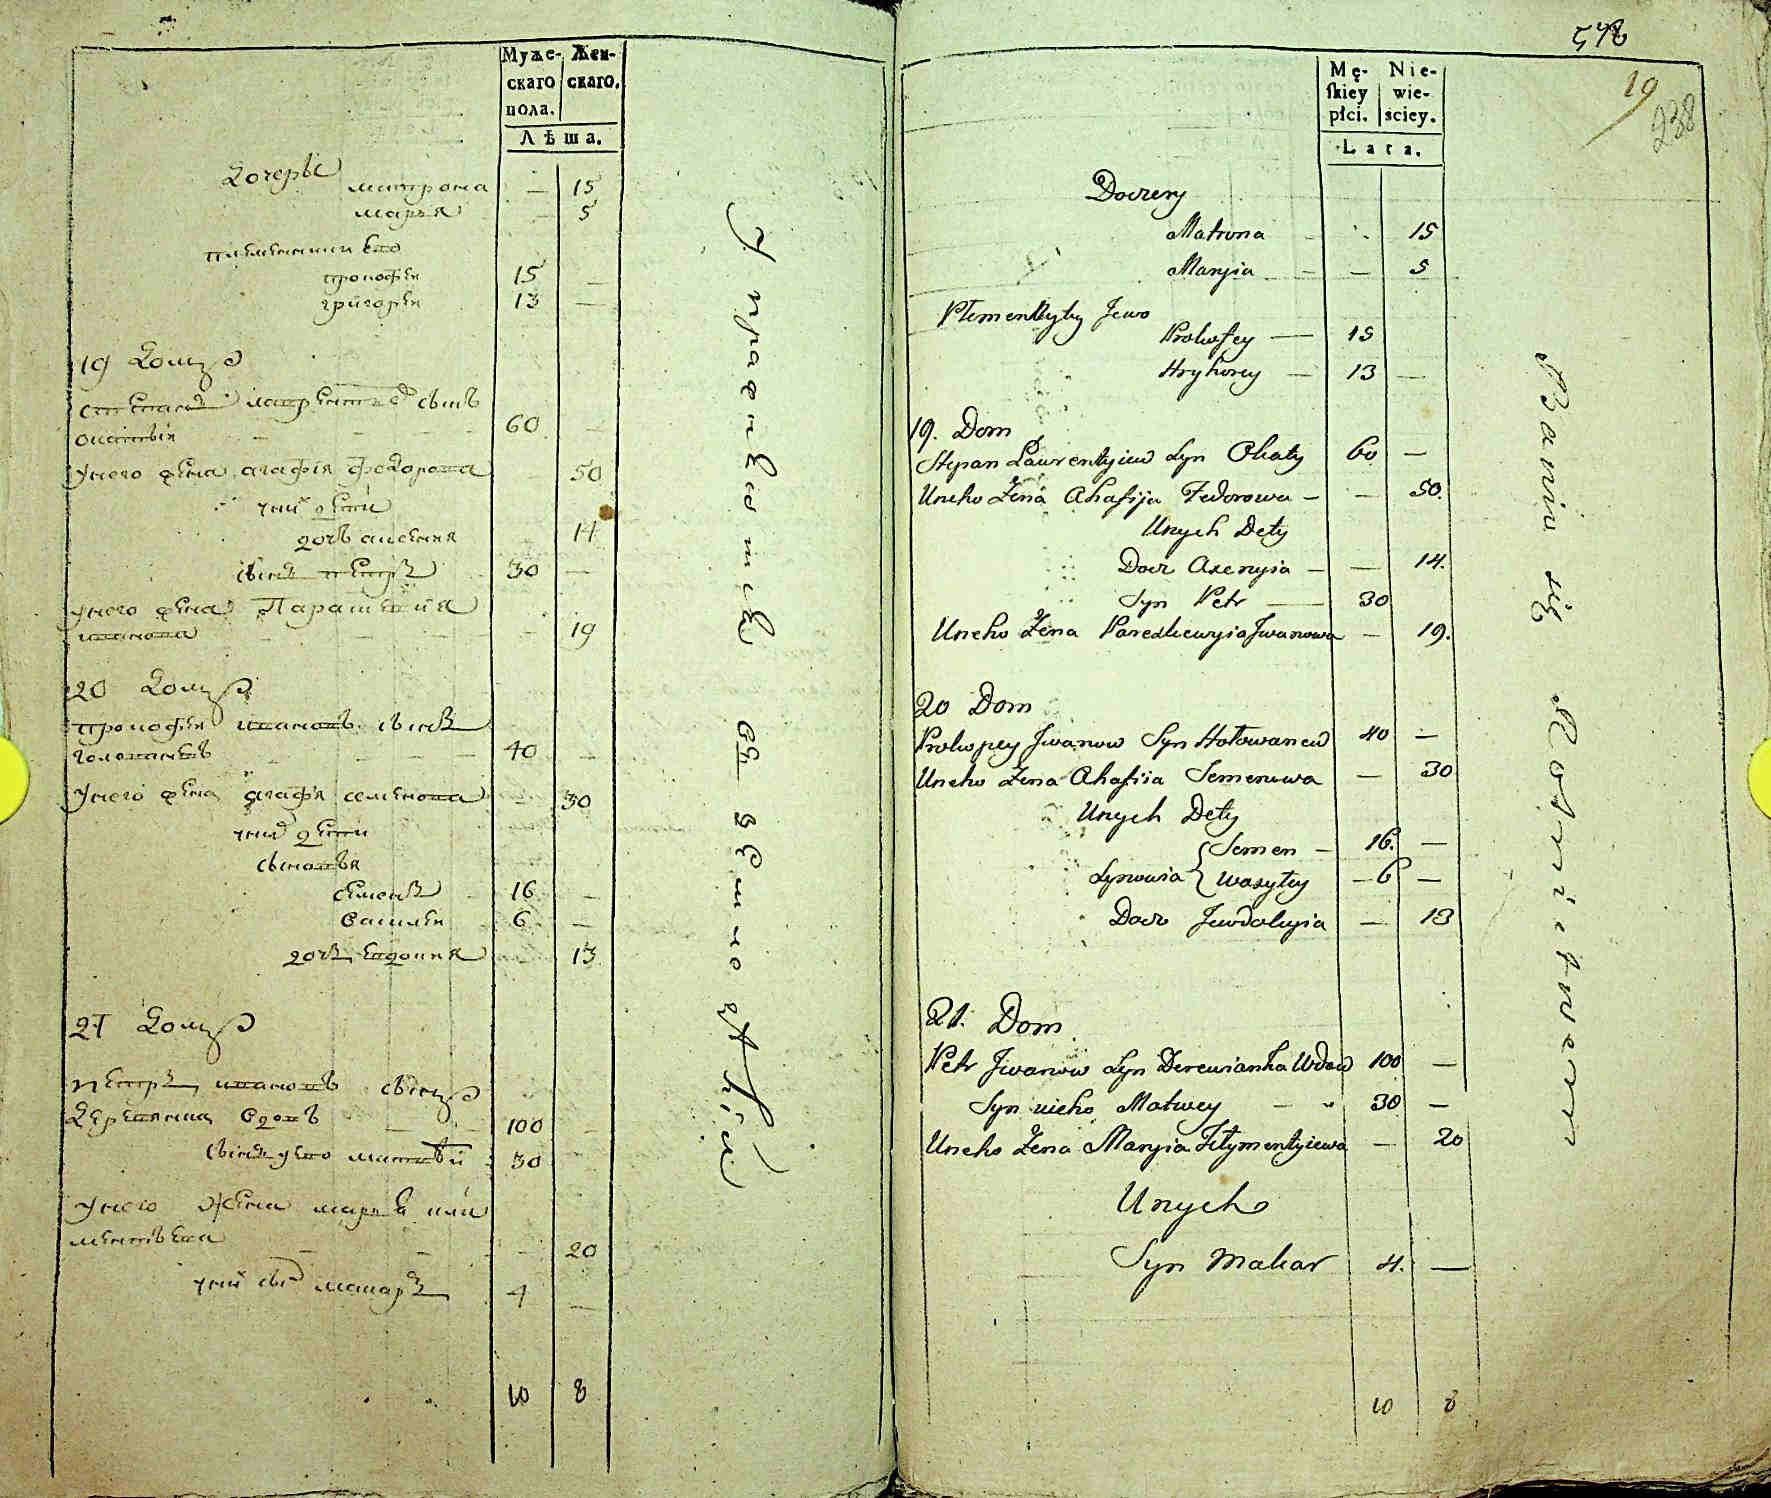 Муже-
скаго
пола.
Жен-
скаго.
Лѣта.
Дочерѣ
матрона — 15
марья — 5
племенники его
прокофей 15 —
григорей 13 —
19 домъ
степанъ лаврентиевъ сынъ
60 —
унего жена агафія федорова 50
уних дети
дочь аксения 14
сынъ петръ 30 —
унего жена Параскевия
иванова — 19
20 домъ
прокофей ивановъ сынъ
голованевъ 40 —
унего жена агафия семенова — 30
уних дети
сыновья
семенъ 16 —
василей 6 —
дочь евдокия 13
21 домъ
петръ ивановъ сынъ
деревянка вдовъ 100 —
сынъ уево матвей 30
унего жена марья кли
ментьева — 20
уних сын макаръ 4 —
10 8
У правкѣ
546
19
238
Mę-
skiey
płci.
Nie-
wie-
sciey.
Lata.
Doczery
Matrona - 15
Maryia — — 5
Plemennyky Jewo
Prokofey — 15
Hryhorey — 13 —
19. Dom
Stepan Lawrentyiew Syn Okaty 60 —
Uneho Żena Ahafija Fedorowa — — 50.
Unych Dety
Docz Axenyia — — 14.
Syn Petr — 30
Uneho Żena Paredkewyia Jwanowa — 19.
20 Dom
Prokopey Jwanow Syn Hołowanew 40 —
Uneho Żena Ahafiia Semenowa — 30
Unych Dety
Synowia { Semen — 16. —
Wasyłey — 6 —
Docz Jewdokyia — 13
21. Dom
Petr Jwanow Syn Derewianka Wdow 100 —
Syn uieho Matwey — 30 —
Uneho Żena Maryia Kłymentyiewa — 20
Unych
Syn Makar 4. —
10 8
Bawin się